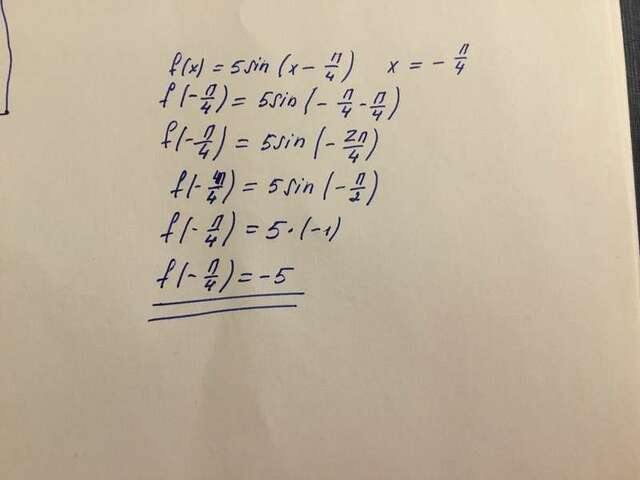 f(x) = 5sin (x - π/4) x = - π/4
f(-π/4) = 5sin (- π/4 - π/4)
f(-π/4) = 5sin (- 2π/4)
f(-π/4) = 5sin (- π/2)
f(- π/4) = 5 · (-1)
f(- π/4) = -5